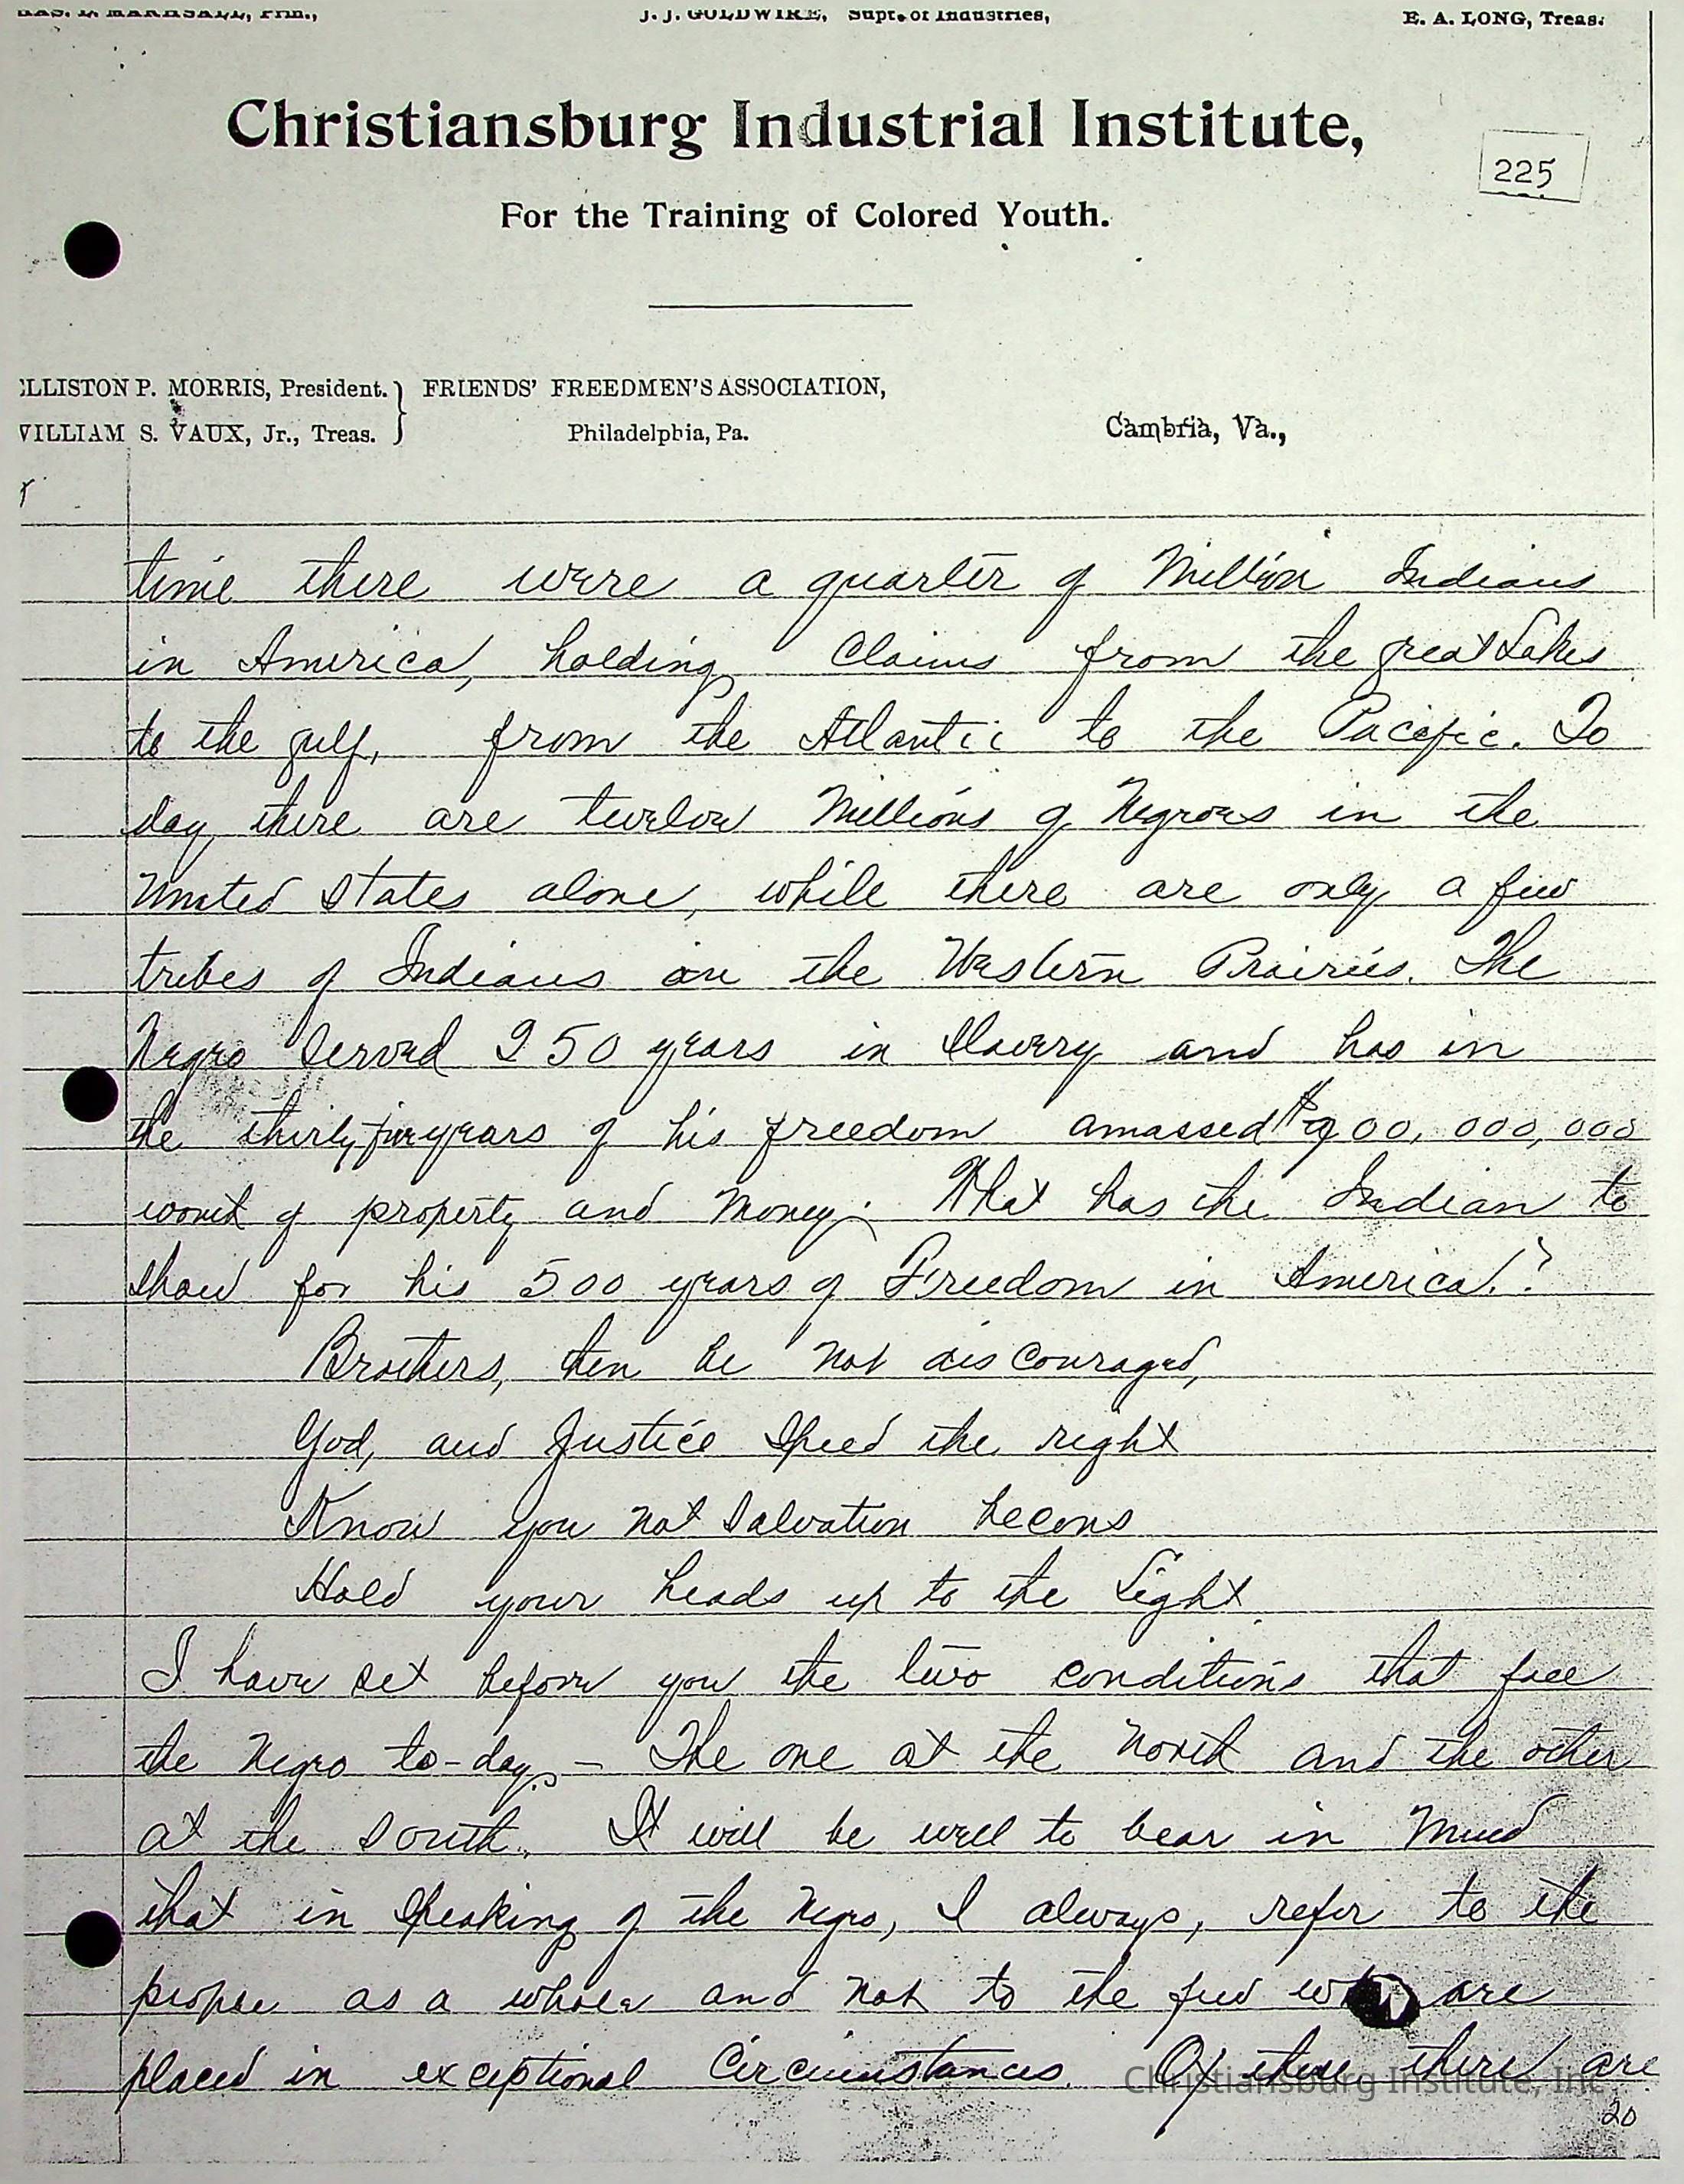 CHAS. L. MARSHALL, Prin., J. J. GOLDWIRE, Supt. of Industries, E. A. LONG, Treas.
Christiansburg Industrial Institute,
225
For the Training of Colored Youth.
ELLISTON P. MORRIS, President. } FRIENDS' FREEDMEN'S ASSOCIATION,
WILLIAM S. VAUX, Jr., Treas. Philadelphia, Pa. Cambria, Va.,
time there were a quarter of Million Indians
in America, holding Claims from the great Lakes
to the gulf, from the Atlantic to the Pacific. To
day there are twelve Millions of Negroes in the
United States alone, while there are only a few
tribes of Indians on the Western Prairies. The
Negro served 250 years in slavery and has in
the thirty five years of his freedom amassed $900,000,000
worth of property and Money. What has the Indian to
show for his 500 years of Freedom in America?
Brothers, then be not discouraged,
God, and Justice speed the right
Know you not Salvation becons
Hold your heads up to the Light.
I have set before you the two conditions that face
the Negro to-day, - The one at the North and the other
at the South. It will be well to bear in Mind
that in speaking of the Negro, I always, refer to the
people as a whole and not to the few who are
placed in exceptional Circumstances. Of these there are
Christiansburg Institute, Inc
20